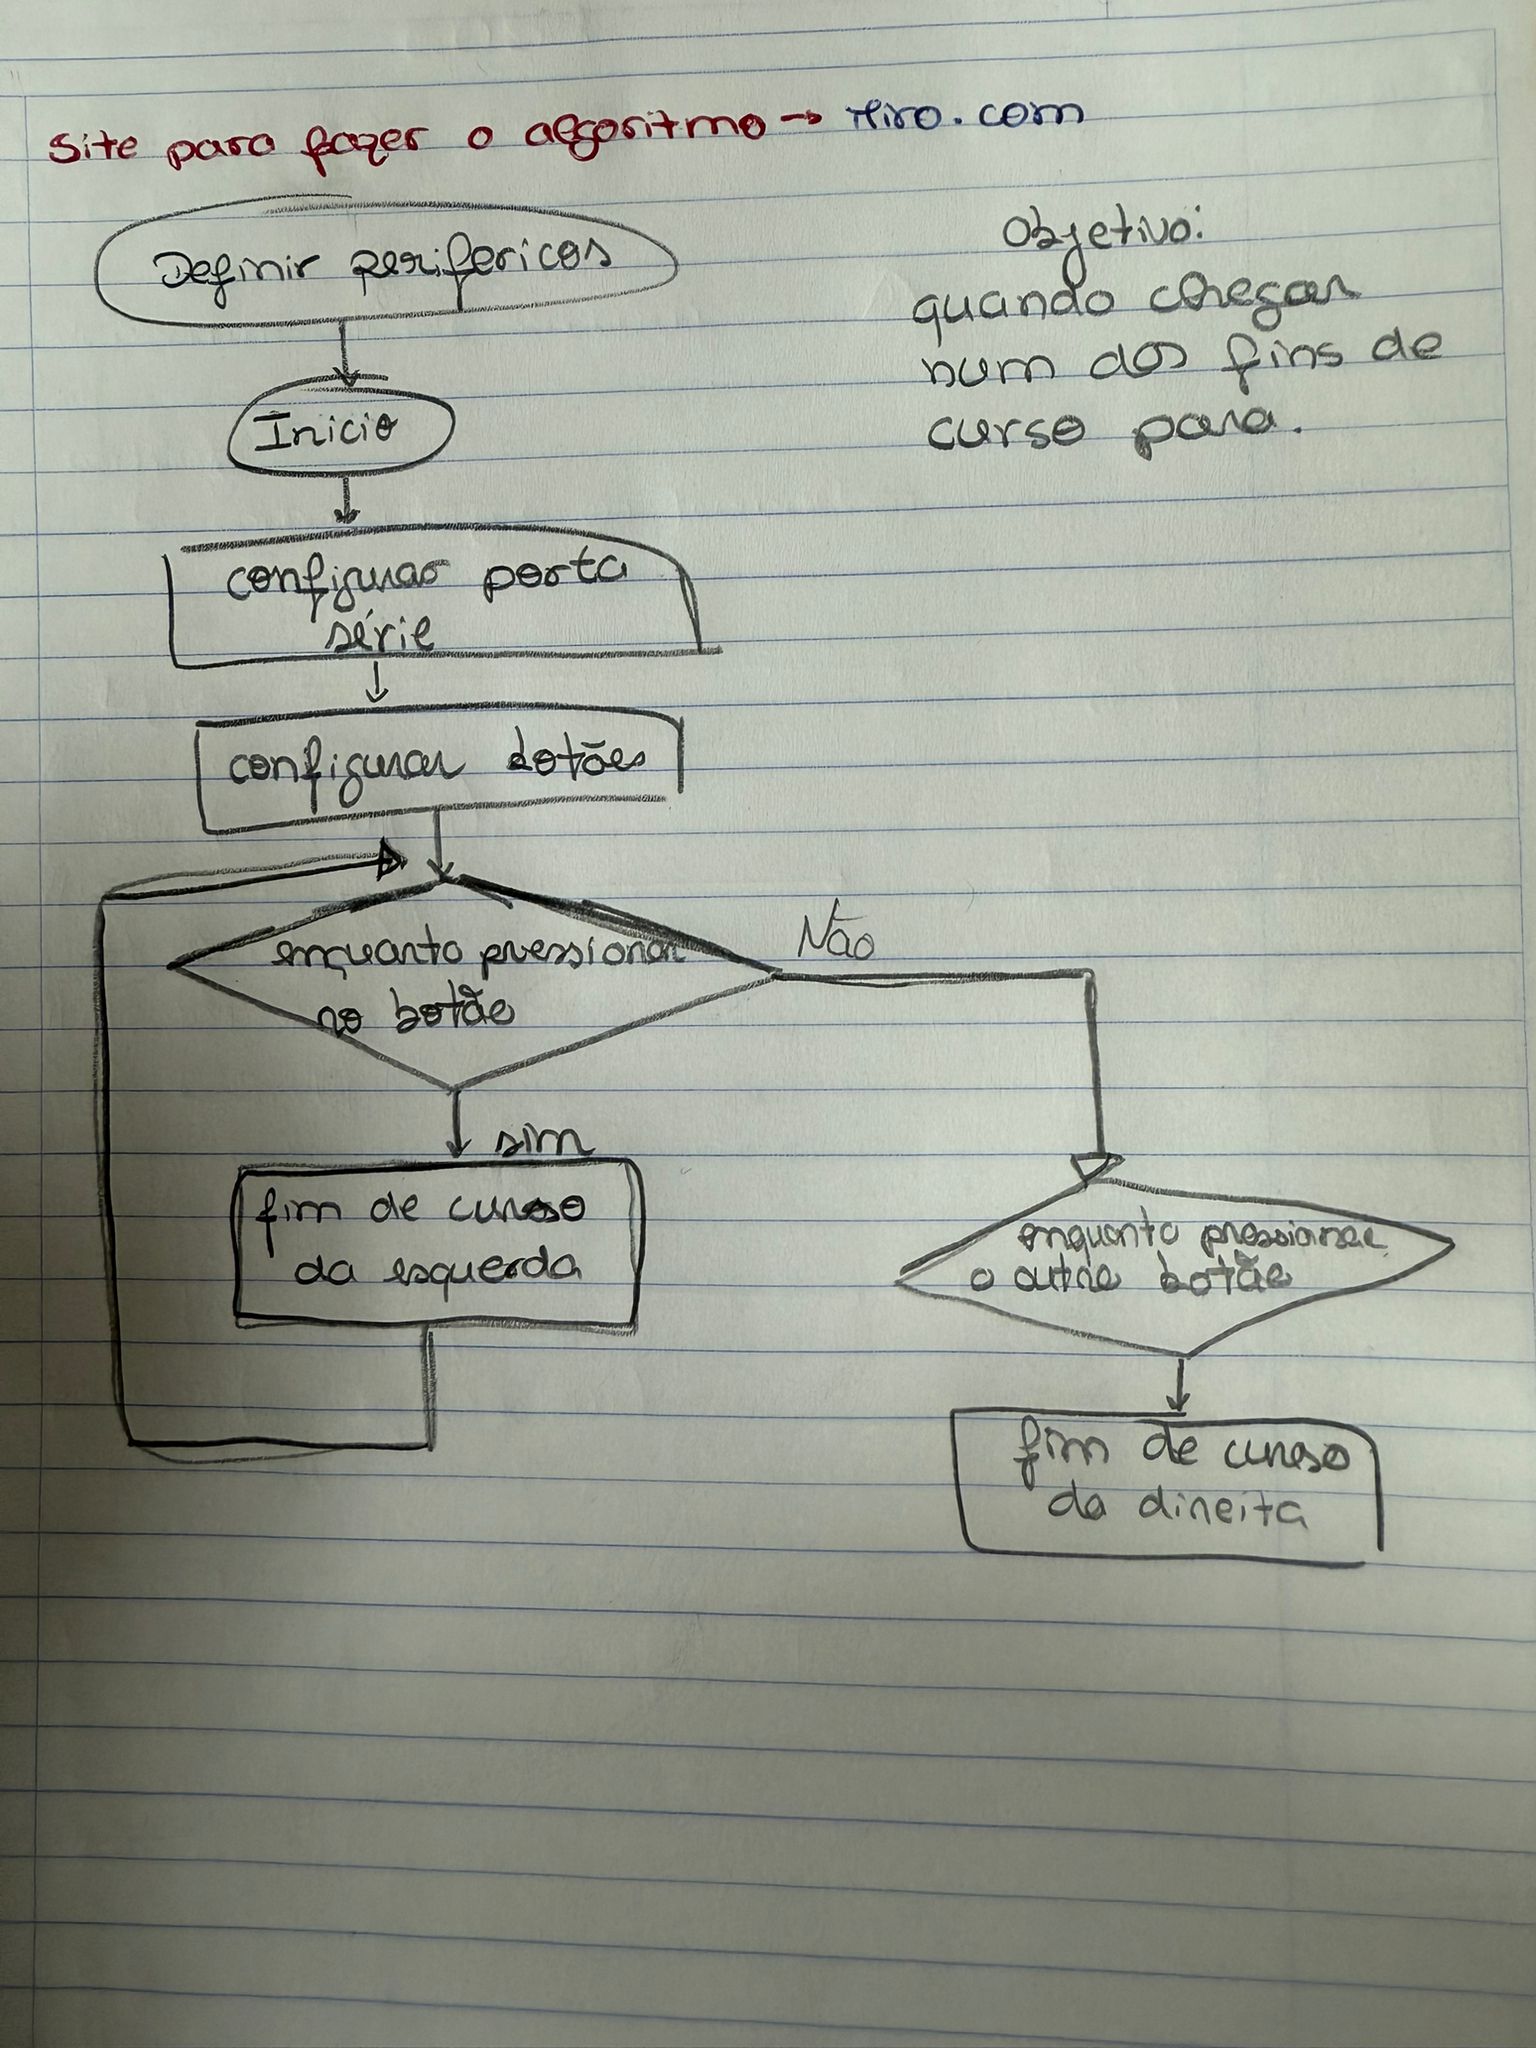 Site para fazer o algoritmo → Miro.com
Definir perifericos
Objetivo:
quando chegar
num dos fins de
curso para.
Inicio
configurar porta
série
configurar botões
enquanto pressionar
no botão
Não
sim
fim de curso
da esquerda
enquanto pressionar
o outro botão
fim de curso
da direita